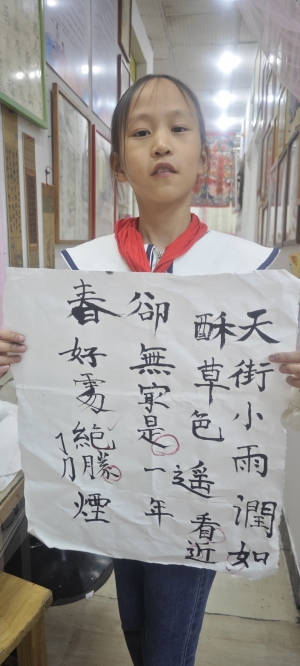 天街小雨潤如
酥草色遥看近
卻無㝡是一年
春好處絕勝煙